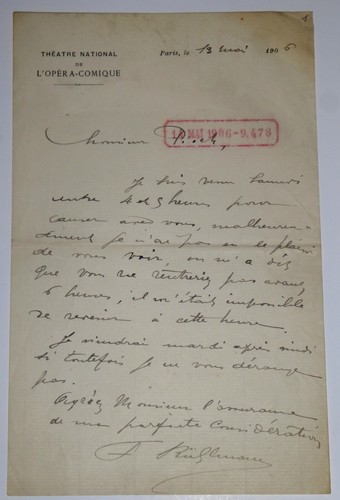 THÉATRE NATIONAL
DE
L'OPÉRA-COMIQUE
Paris, le 13 mai 1906
MAI 1906-9.478
Monsieur
Je suis venu samedi
entre 4 et 5 heures pour
causer avec vous, malheureu-
sement je n'ai pas eu le plaisir
de vous voir, on m'a dit
que vous ne rentreriez pas avant
6 heures, il m'était impossible
de revenir à cette heure.
Je viendrai mardi après midi
si toutefois je ne vous dérange
pas.
Agréez Monsieur l'assurance
de ma parfaite considération
F Rühlmann